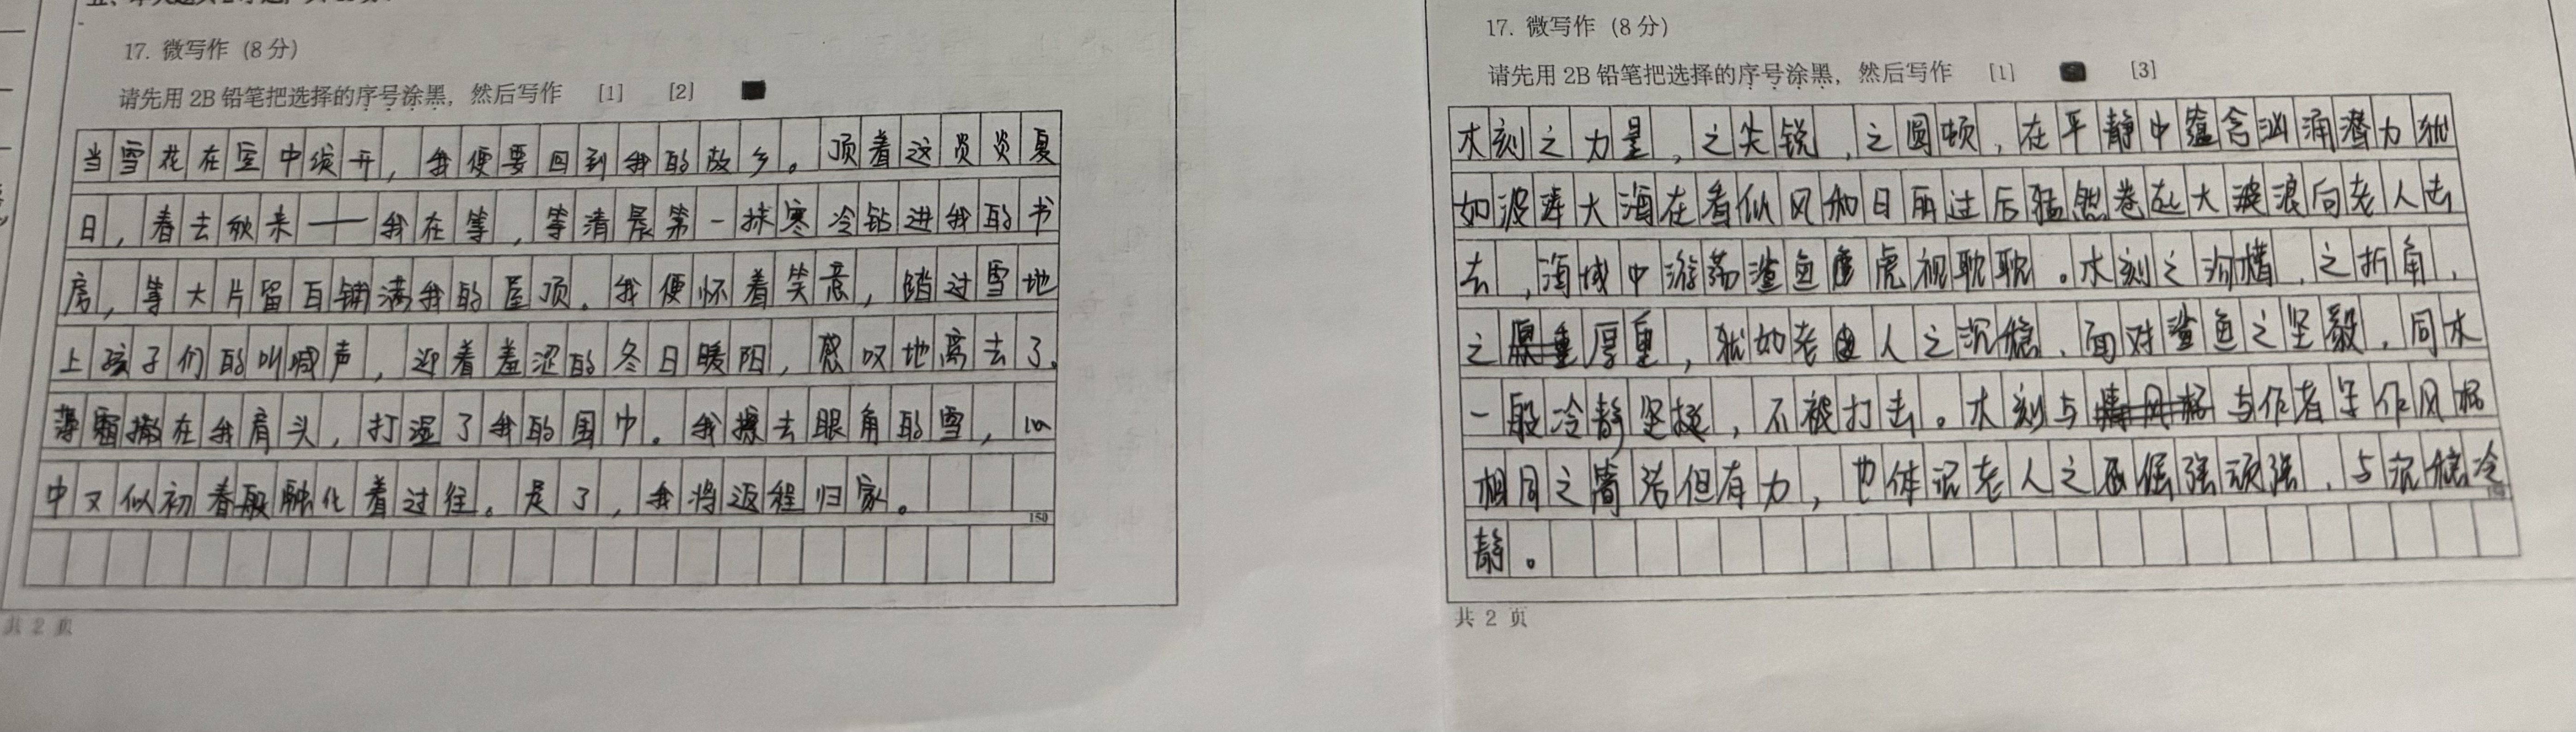 17. 微写作（8 分）
请先用 2B 铅笔把选择的序号涂黑，然后写作 [1] [2]
当雪花在空中绽开，我便要回到我的故乡。顶着这炎炎夏
日，春去秋来——我在等，等清晨第一抹寒冷钻进我的书
房，等大片留白铺满我的屋顶。我便怀着笑意，踏过雪地
上孩子们的叫喊声，迎着羞涩的冬日暖阳，感叹地离去了。
薄霜撒在我肩头，打湿了我的围巾。我擦去眼角的雪，心
中又似初春般融化着过往。是了，我将返程归家。
150
共 2 页
17. 微写作（8 分）
请先用 2B 铅笔把选择的序号涂黑，然后写作 [1] [3]
木刻之力量，之尖锐，之圆顿，在平静中蕴含汹涌潜力犹
如波涛大海在看似风和日丽过后猛然卷起大波浪向老人击
去，海域中游荡鲨鱼虎视耽耽。木刻之沟槽，之折角，
之厚重，犹如老人之沉稳，面对鲨鱼之坚毅，同木
一般冷静坚挺，不被打击。木刻与与作者写作风格
相同之简洁但有力，也体现老人之倔强顽强，与沉稳冷
静。
共 2 页